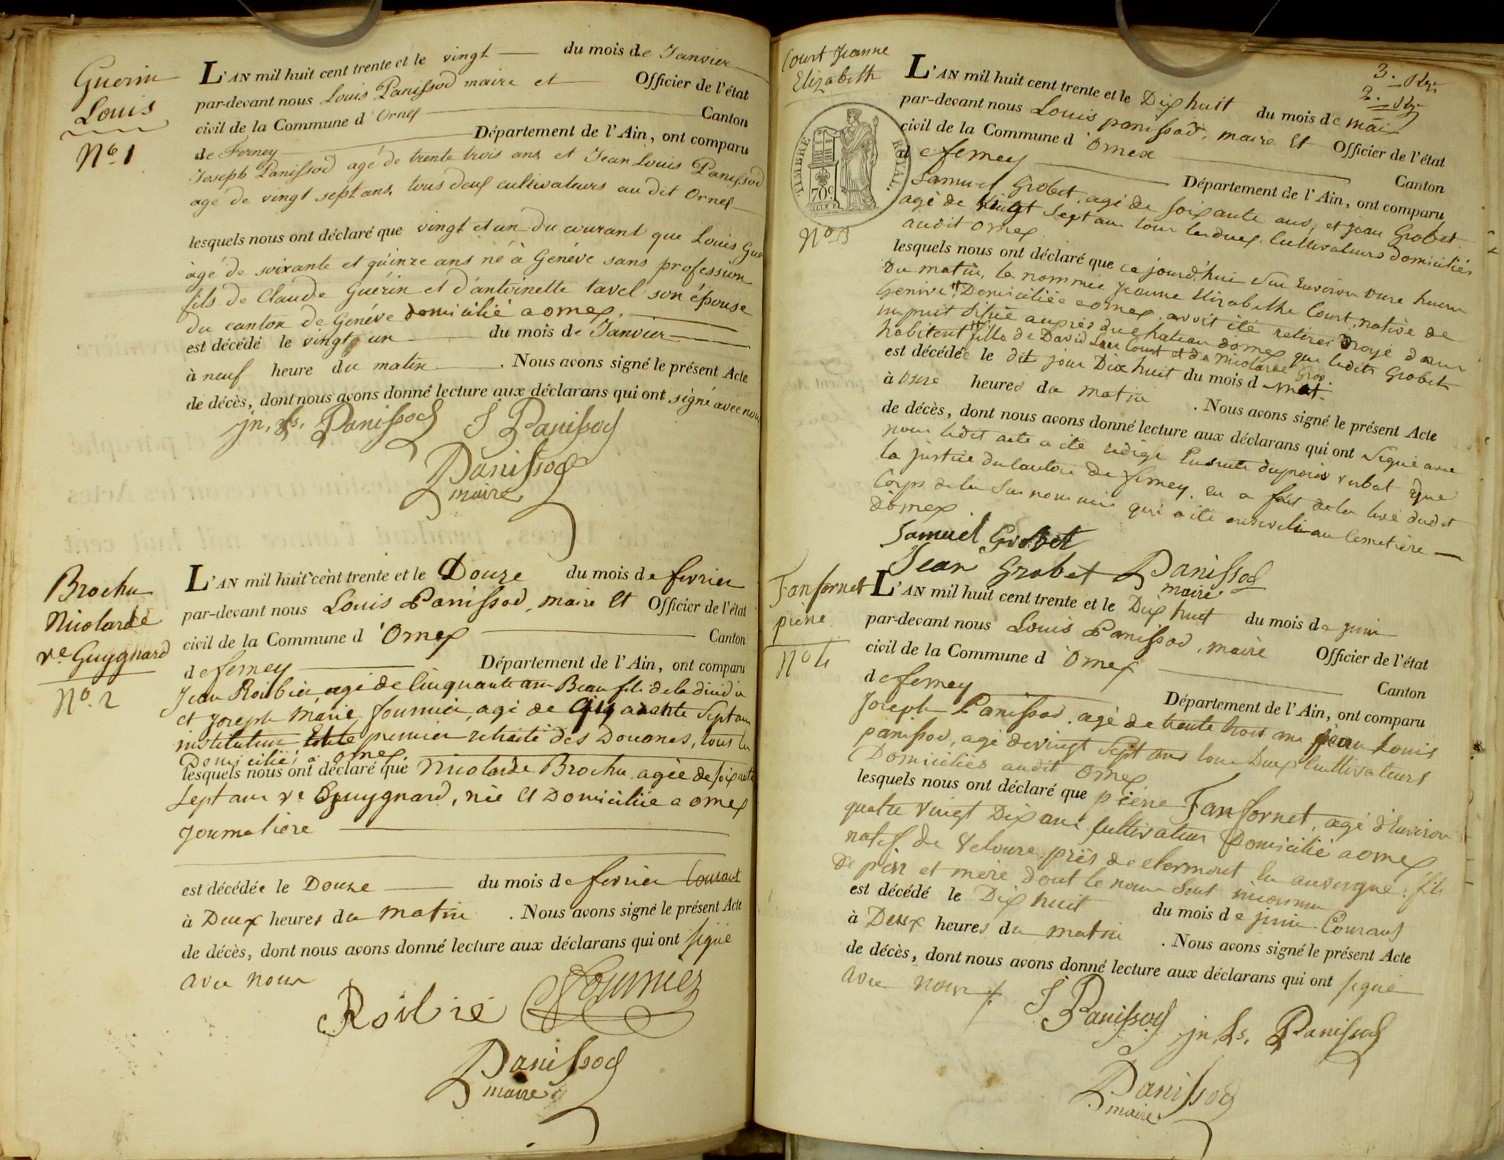 Guerin
Louis
No. 1
L'AN mil huit cent trente et le vingt du mois de Janvier
par-devant nous Louis Panissod maire et Officier de l'état
civil de la Commune d'Ornex Canton
de Ferney Département de l'Ain, ont comparu
Joseph Panissod agé de trente trois ans et Jean Louis Panissod
agé de vingt sept ans, tous deux cultivateurs au dit Ornex
lesquels nous ont déclaré que vingt et un du courant que Louis Gue
agé de soixante et quinze ans né à Genéve sans profession
fils de Claude Guérin et d'antoinette tavel son épouse
du canton de Genéve domicilié a ornex.
est décédé le vingt un du mois de Janvier
à neuf heure du matin. Nous avons signé le présent Acte
de décès, dont nous avons donné lecture aux déclarans qui ont signé avec nous
jn. Ls. Panissod J Panissod
Panissod
maire
Brochu
Nicolarde
ve Guygnard
No. 2
L'AN mil huit cent trente et le Douze du mois de fevrier
par-devant nous Louis Panissod, maire Et Officier de l'état
civil de la Commune d'Ornex Canton
de ferney Département de l'Ain, ont comparu
Jean Roilbié agé de Cinquante ans Beau fils de la
et Joseph Marie fournier, agé de Cinquante Sept ans
instituteur premier retraité des Douanes, tous
Domicilié à ornex
lesquels nous ont déclaré que Nicolarde Brochu, agée de soixante
Sept ans ve Guygnard, née Et Domiciliée a ornex
Journaliere
est décédée le Douze du mois de fevrier Courant
à Deux heures du matin. Nous avons signé le présent Acte
de décès, dont nous avons donné lecture aux déclarans qui ont signé
avec nous
Roilbié Fournier
Panissod
maire
Court Jeanne
Elizabeth
TIMBRE ROYAL
70c
No 3
L'AN mil huit cent trente et le Dix huit du mois de mai
par-devant nous Louis panissod, maire Et Officier de l'état
civil de la Commune d'Ornex Canton
de ferney Département de l'Ain, ont comparu
Samuel Grobet, agé de soixante ans, et Jean Grobet
agé de vingt Sept ans tous les deux Cultivateurs domiciliés
audit Ornex
lesquels nous ont déclaré que ce jourd'hui Sur Environ onze heures
du matin, la nommée Jeanne Elizabethe Court, native de
Genève, Domiciliée a ornex, avoit été retirée noyé dans
un puit situé auprès du chateau dornex que ledit Grobet
habitent fille de David Court et de Nicolarde Gros
est décédée le dit jour Dix huit du mois de Mai
à onze heures du matin. Nous avons signé le présent Acte
de décès, dont nous avons donné lecture aux déclarans qui ont Signé avec
nous ledit acte a été rédigé Ensuite du procès verbal que
la justice du Canton de ferney, en a fait de la levé dudit
Corps de la Sus nommée qui a été enseveli au Cemetière
d'ornex
Samuel Grobet
Jean Grobet Panissod
maire
Fanfornet
pierre
No 4
L'AN mil huit cent trente et le Dix huit du mois de juin
par-devant nous Louis Panissod, maire Officier de l'état
civil de la Commune d'Ornex Canton
de ferney Département de l'Ain, ont comparu
Joseph Panissod, agé de trente trois ans jean Louis
panissod, agé de vingt Sept ans tous Deux Cultivateurs
Domiciliés audit Ornex
lesquels nous ont déclaré que pierre Fanfornet, agé d'Environ
quatre vingt Dix ans Cultivateur Domicilié a ornex
natif de Veloure près de clermont en auvergne: fils
de père et mère dont le nom Sont inconnu
est décédé le Dix huit du mois de juin Courant
à Deux heures du matin. Nous avons signé le présent Acte
de décès, dont nous avons donné lecture aux déclarans qui ont signé
avec nous
J Panissod jn. Ls. Panissod
Panissod
maire